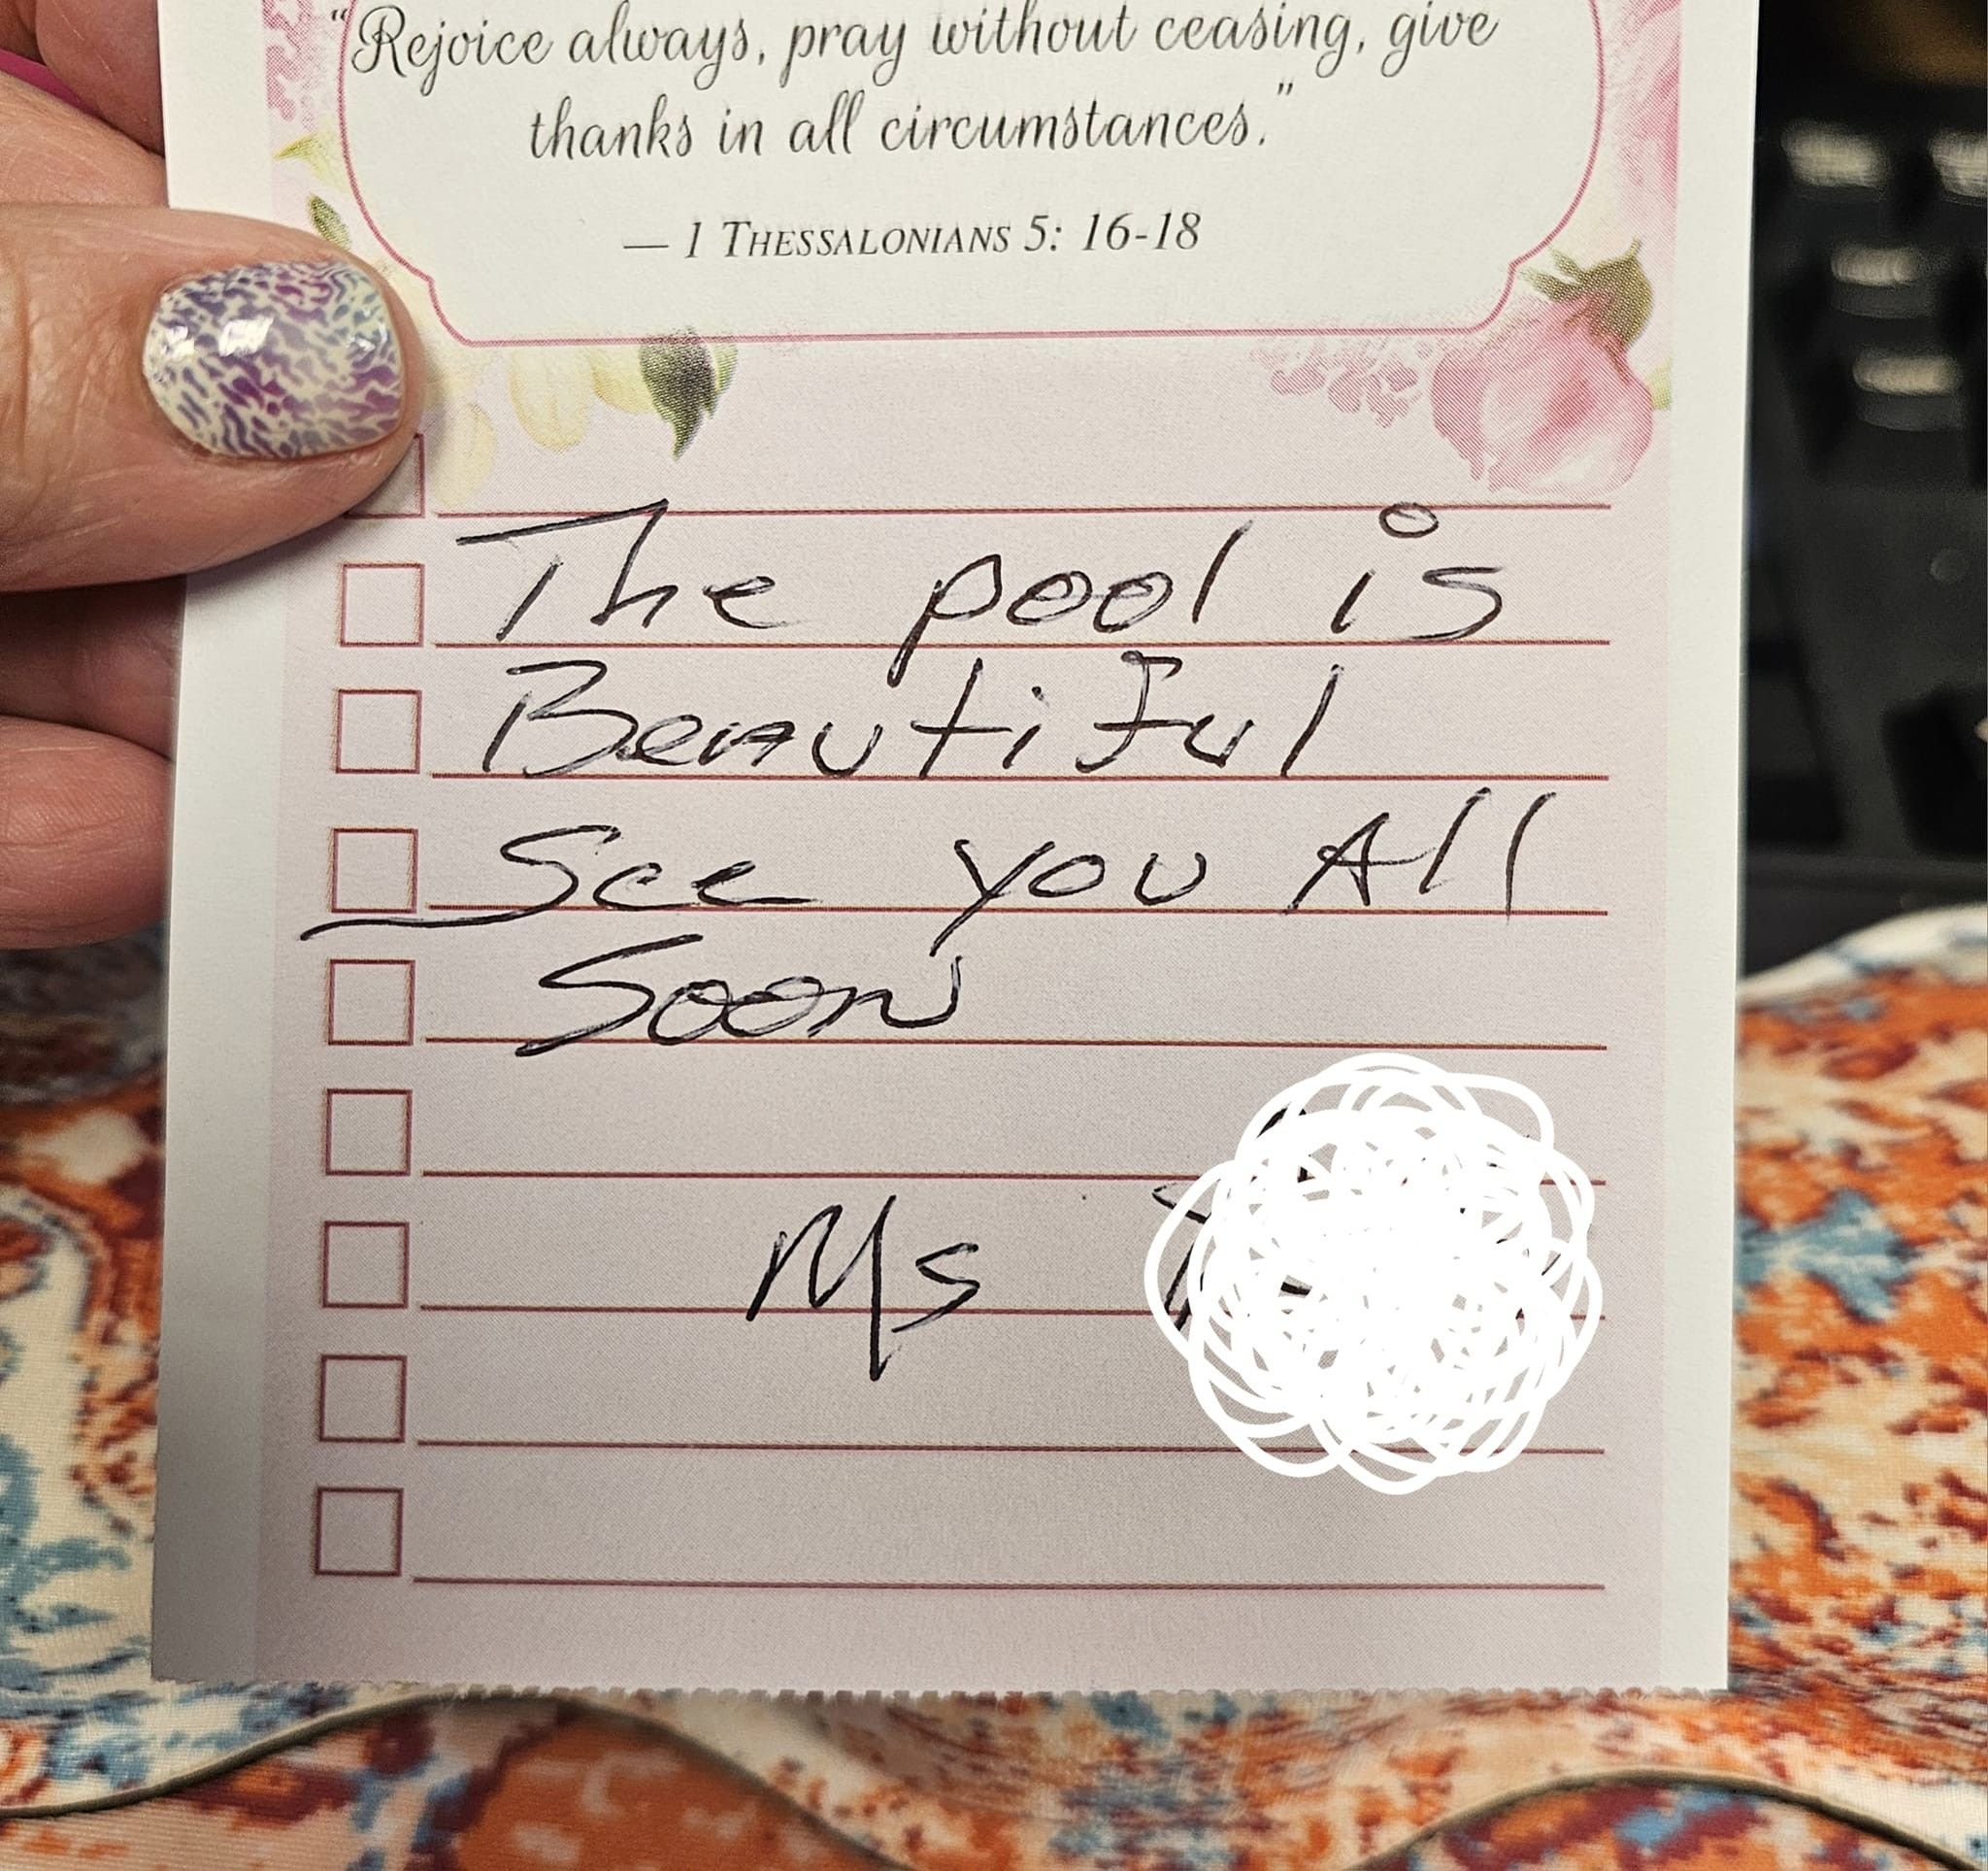 "Rejoice always, pray without ceasing, give
thanks in all circumstances."
— 1 THESSALONIANS 5: 16-18
The pool is
Beautiful
See you All
Soon
Ms